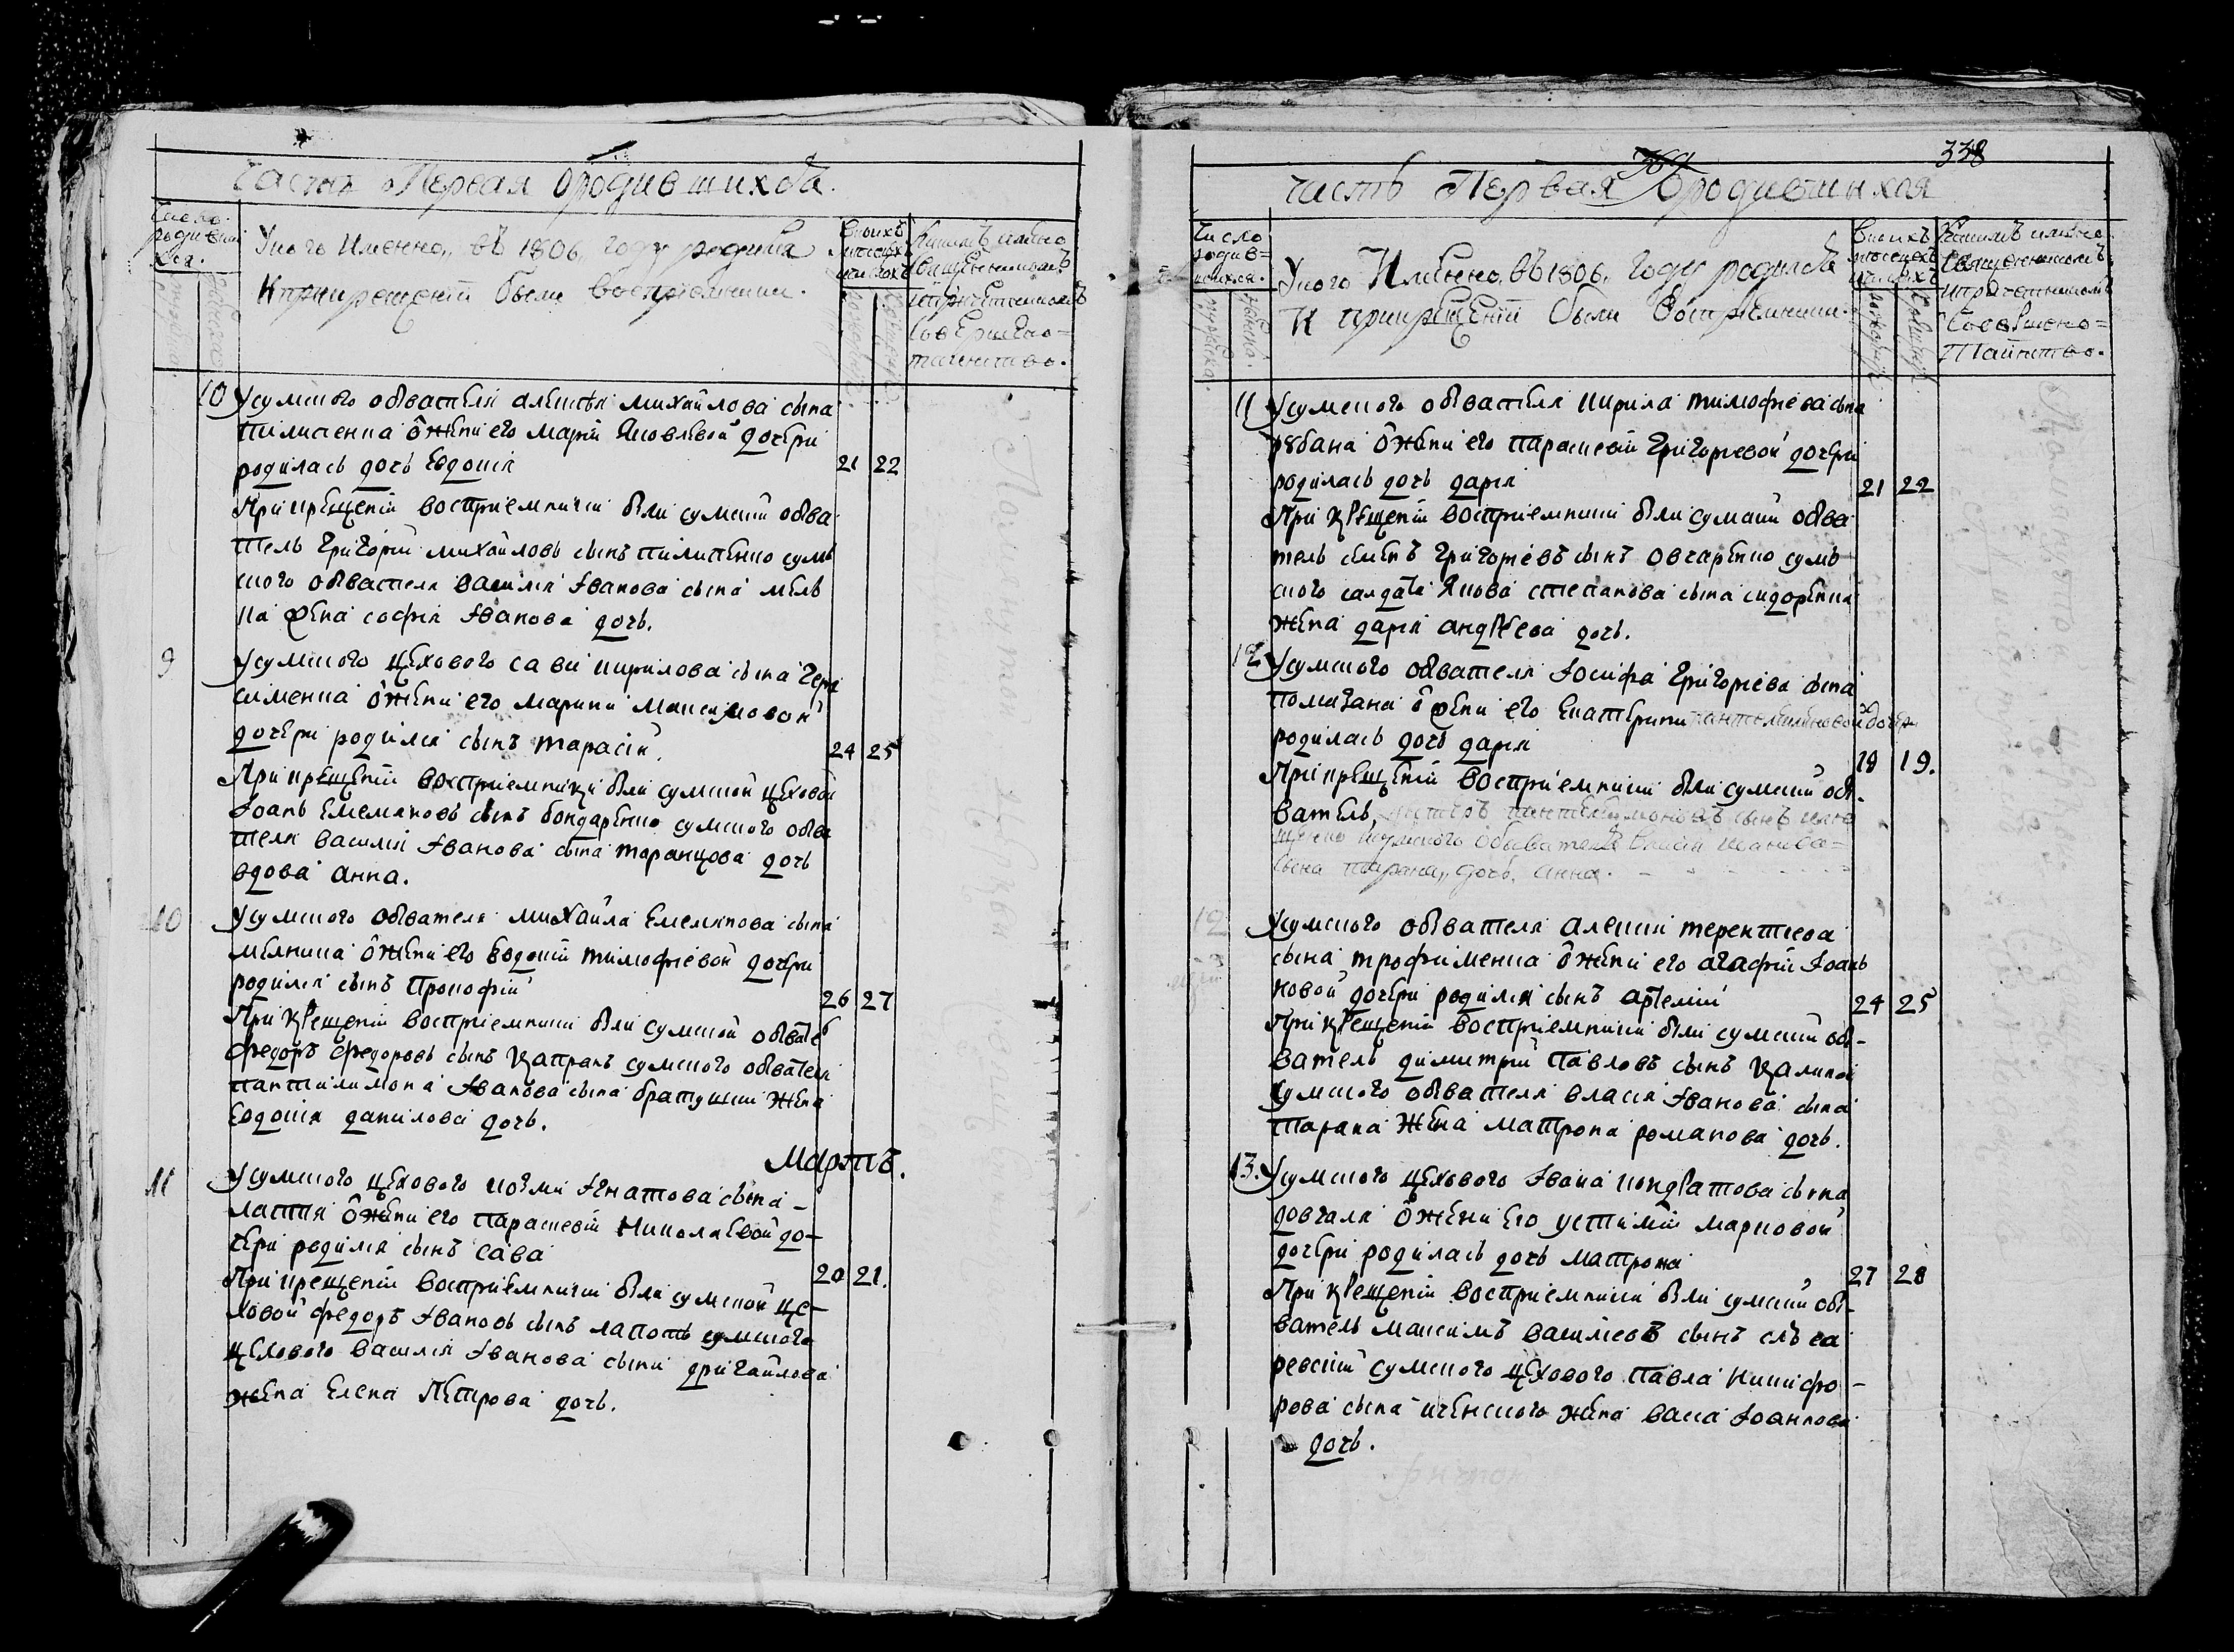 Часть Первая о родившихся.
Число родившихся.
У кого Именно, въ 1806, году родился
И при крещеніи были воспріемники.
В коихъ месецехъ и числахъ
Какимъ имено
священникомъ
и причетникомъ
Совершено
таинство.
10 У сумского обвателя алеѯѣя михайлова сына
пилипенка о жени его маріи Яковлевой дочери
родилась дочь Евдокія 21 22
При крещеніи восприемники были сумскій обва
тель Григорій михайловъ сынъ пилипенко сумъ
ского обвателя василія Іванова сына мель
жена софія Іванова дочь.
9 У сумского цехового савы кирилова сына Гера
сіменка о жени его марини маѯимовой
дочери родился сынъ тарасій. 24 25
При крещеніи восприемники были сумской цеховой
Іоанъ Емеляновъ сынъ бондаренко сумского обва
теля василія Іванова сына таранцова дочь
вдова анна.
10 У сумского обвателя михайла Емелянова сына
о жени его Евдокіи тимофіевой дочери
родился сынъ Прокофій 26 27
При крещеніи восприемники были сумской обватель
федоръ федоровъ сынъ капранъ сумского обвателя
пантилимона Іванова сына братушки жена
Евдокія данилова дочь.
Мартъ.
11 У сумского цехового козми Ігнатова сына
лаптя о жени его параскевіи Николаевой до-
чери родился сынъ сава 20 21.
При крещеніи восприемники были сумской це-
ховой федоръ Івановъ сынъ лапоть сумского
цехового василія Іванова сына дригайлова
жена Елена Петрова дочь.
369
338
часть Первая о родившихся
Число родившихся.
У кого Имѣнно, въ 1806, году родился
И при крещеніи были воспріемники.
В коихъ месецехъ и числахъ
Какимъ имѣно
Священникомъ
и причетникомъ
Совершено
Таинство.
11 У сумского обвателя кирила тимофіева сына
рубана о жени его параскевіи Григорьевой дочери
родилась дочь дарія 21 22
При крещеніи восприемники были сумскій обва
тель Григоріевъ сынъ овчаренко сумъ
ского салдата Якова степанова сына сидоренка
жена дарія андреева дочь.
12 У сумского обвателя Іосифа Григоріева сына
помазана о жени его Екатерини пантелимоновой дочери
родилась дочь дарія 18 19.
При крещеніи восприемники были сумскій об-
ватель, пантелимоновъ сынъ
сумского обывателя Власія Иванова
сына тарана, дочь. анна.
12 У сумского обвателя алеѯія терентіева
сына трофименка о жени его агафіи Іоанъ
новой дочери родился сынъ артемій 24 25
При крещеніи восприемники были сумскій об-
ватель димитрій Павловъ сынъ
сумского обвателя власія Іванова сына
тарана жена матрона романова дочь.
13. У сумского цехового Івана кондратова сына
довгаля о жени его устиніи марковой
дочери родилась дочь матрона 27 28
При крещеніи восприемники были сумскій об-
ватель маѯимъ василіевъ сынъ слъса
ревскій сумского цехового павла никифо-
рова сына жена васса Іоаннова
дочь.